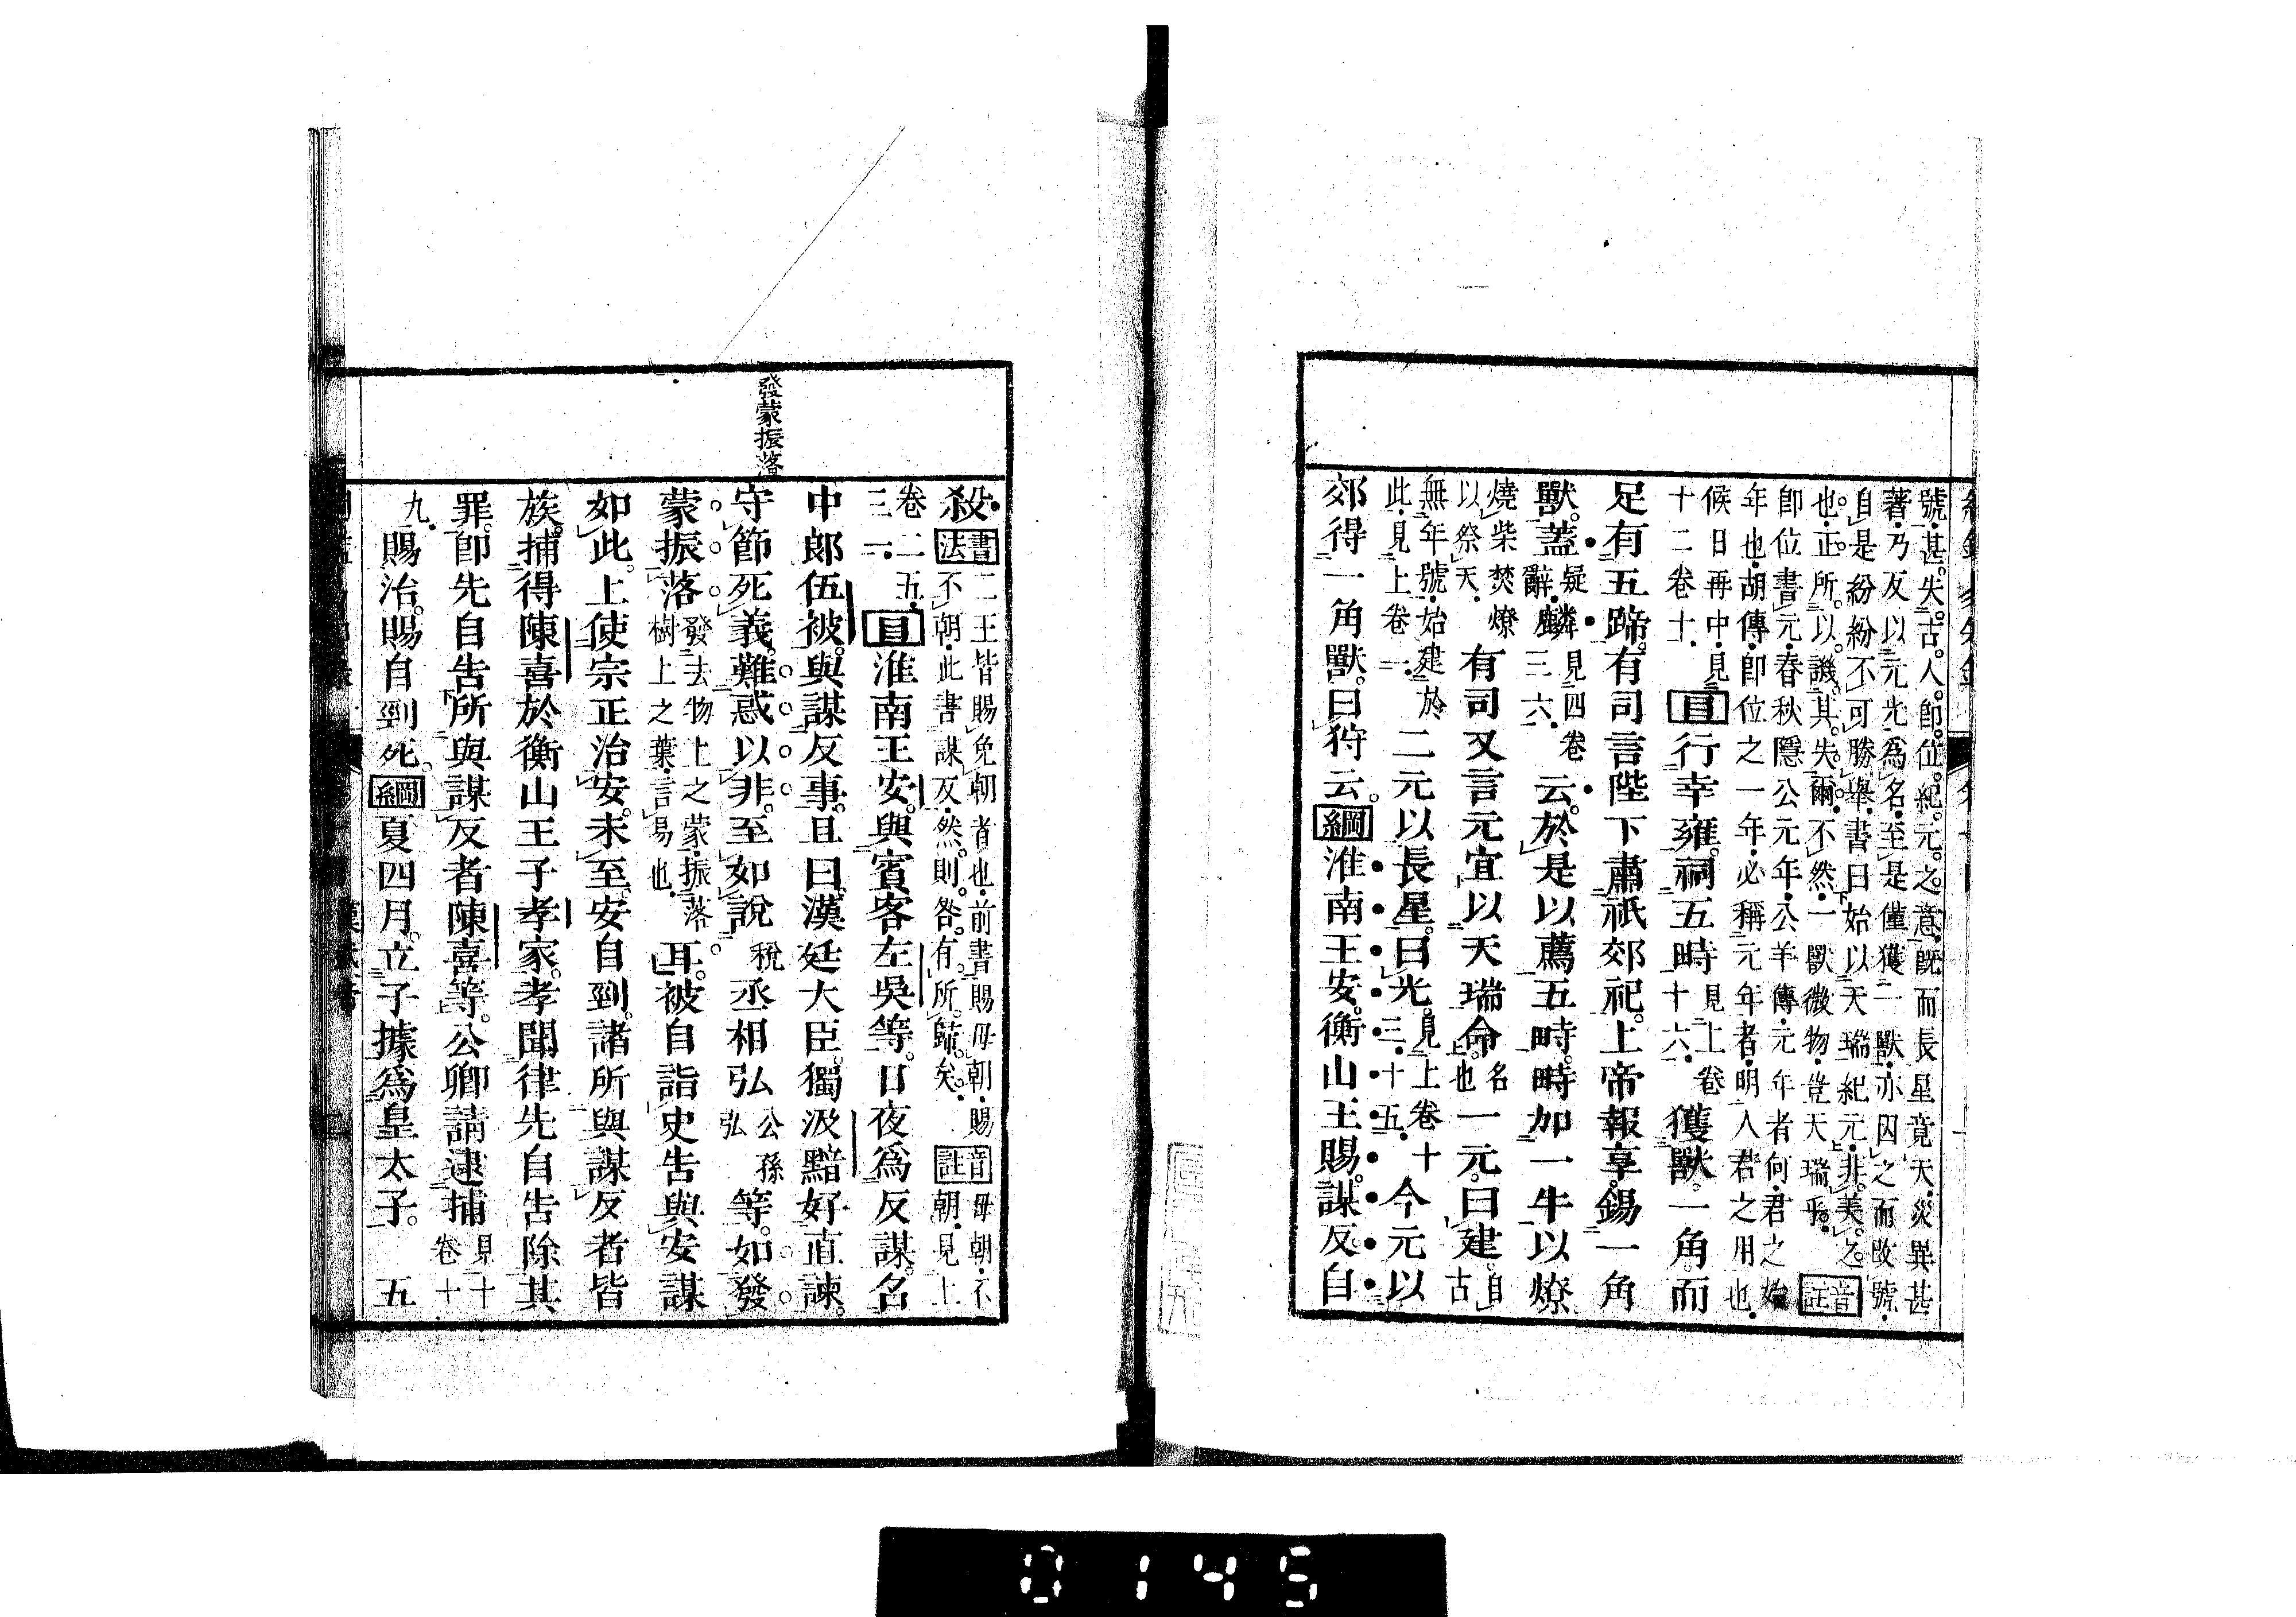 號甚失古人即位紀元之意既而長星竟天災異甚
著乃反以元光為名至是僅獲一獸亦因之而改號
自是紛紛不可勝舉書曰始以天瑞紀元非美之
也正所以譏其失爾不然一獸微物豈天瑞乎音註
即位書元春秋隱公元年公羊傳元年者何君之始
年也胡傳即位之一年必稱元年者明人君之用也
候日再中見
十二卷十
目行幸雍祠五畤
見上卷
十六
獲獸一角而
足有五蹄有司言陛下肅祇郊祀上帝報享錫一角
獸蓋
疑
辭
麟
見四卷
三六
云於是以薦五畤畤加一牛以燎
燒柴焚燎
以祭天
有司又言元宜以天瑞命
名
也
一元曰建
自
古
無年號始建於
此見上卷一
二元以長星曰光
見上卷十
三十五
今元以
郊得一角獸曰狩云綱淮南王安衡山王賜謀反自
發蒙振落
殺書法
二王皆賜免朝者也前書賜毋朝賜
不朝此書謀反然則咎有所歸矣
音註
毋朝不
朝見上
卷二五
三一
目淮南王安與賓客左吳等日夜為反謀名
中郎伍被與謀反事且曰漢廷大臣獨汲黯好直諫
守節死義難惑以非至如說
稅
丞相弘
公孫
弘
等如發
蒙振落
發去物上之蒙振落
樹上之葉言易也
耳被自詣吏告與安謀
如此上使宗正治安未至安自剄諸所與謀反者皆
族捕得陳喜於衡山王子孝家孝聞律先自告除其
罪即先自告所與謀反者陳喜等公卿請逮捕
見十
卷十
九
賜治賜自剄死綱夏四月立子據為皇太子
五
0145